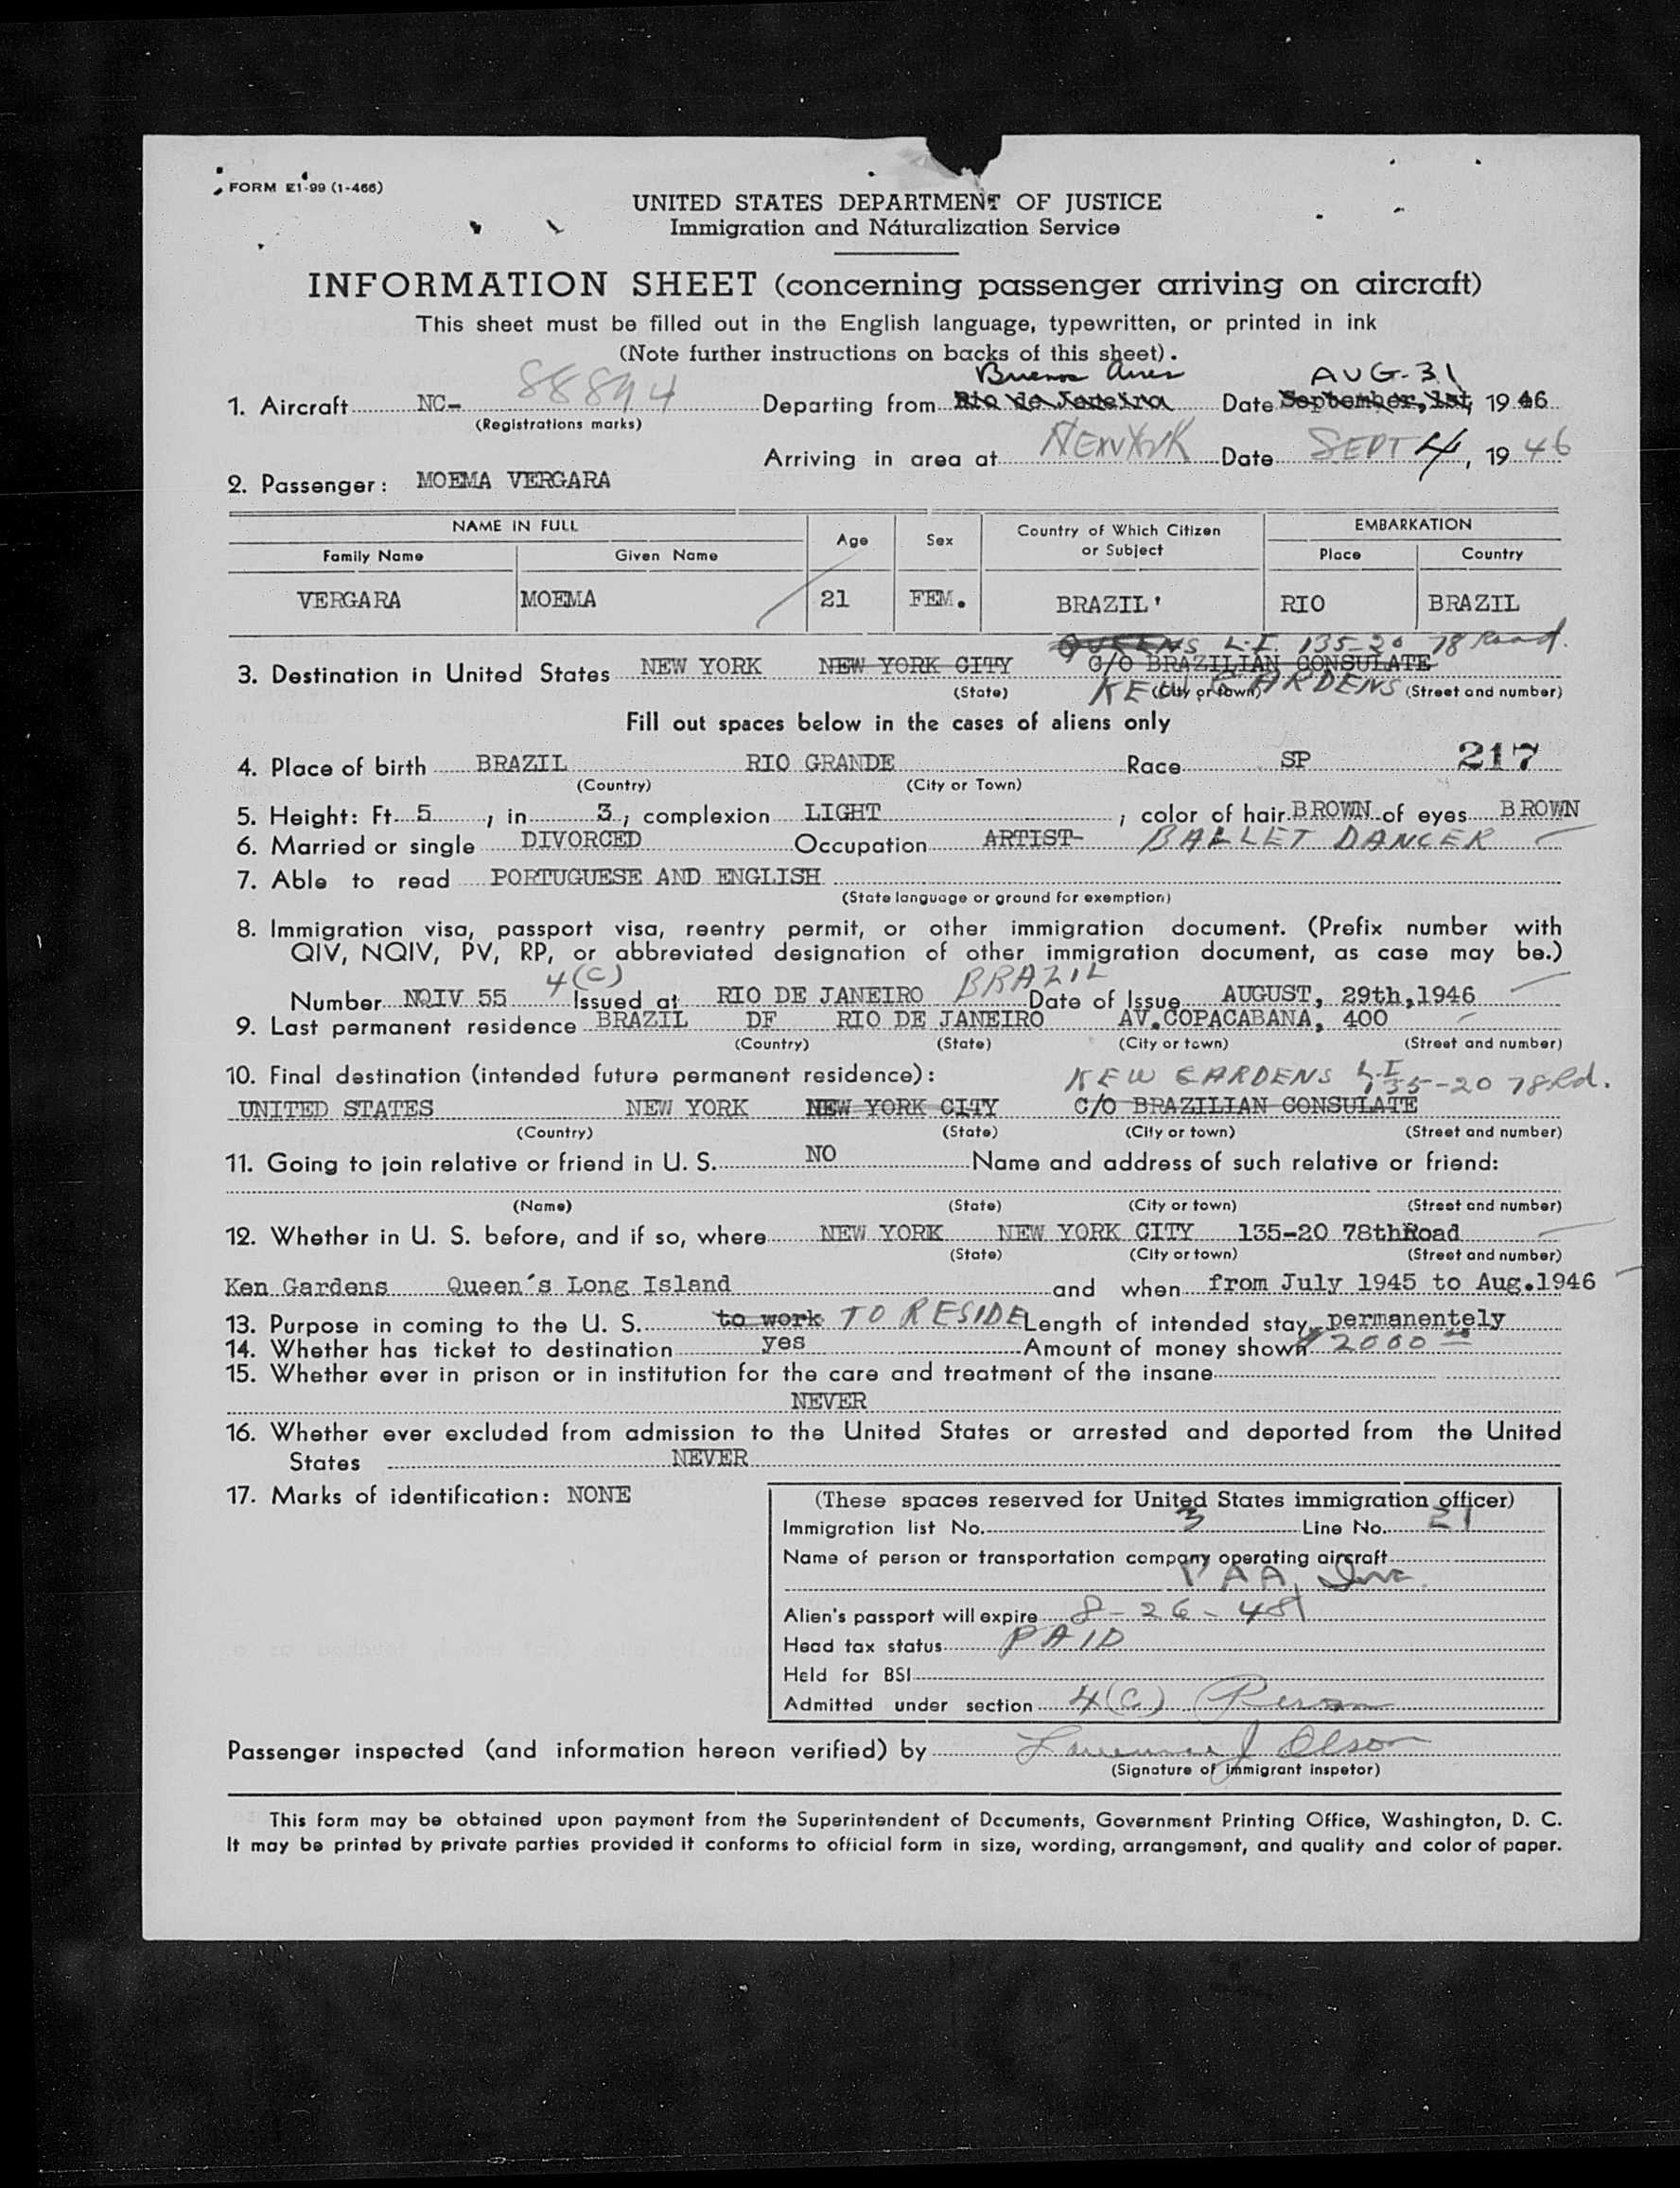 FORM E1-99 (1-466)
UNITED STATES DEPARTMENT OF JUSTICE
Immigration and Naturalization Service
INFORMATION SHEET (concerning passenger arriving on aircraft)
This sheet must be filled out in the English language, typewritten, or printed in ink
(Note further instructions on backs of this sheet).
Buenos Aires AUG-31
1. Aircraft NC- 88894 Departing from Rio de Janeiro Date September, 1st, 19 46
(Registrations marks)
Arriving in area at NEW YORK Date SEPT 4, 19 46
2. Passenger: MOEMA VERGARA
NAME IN FULL Age Sex Country of Which Citizen or Subject EMBARKATION
Family Name Given Name Place Country
VERGARA MOEMA 21 FEM. BRAZIL' RIO BRAZIL
QUEENS L.I. 135-20 78 Road.
3. Destination in United States NEW YORK NEW YORK CITY C/O BRAZILIAN CONSULATE
KEW GARDENS
(State) (City or town) (Street and number)
Fill out spaces below in the cases of aliens only
4. Place of birth BRAZIL RIO GRANDE Race SP 217
(Country) (City or Town)
5. Height: Ft. 5, in 3, complexion LIGHT, color of hair BROWN of eyes BROWN
6. Married or single DIVORCED Occupation ARTIST- BALLET DANCER
7. Able to read PORTUGUESE AND ENGLISH
(State language or ground for exemption)
8. Immigration visa, passport visa, reentry permit, or other immigration document. (Prefix number with
QIV, NQIV, PV, RP, or abbreviated designation of other immigration document, as case may be.)
4(C) BRAZIL
Number NQIV 55 Issued at RIO DE JANEIRO Date of Issue AUGUST, 29th,1946
9. Last permanent residence BRAZIL DF RIO DE JANEIRO AV.COPACABANA, 400
(Country) (State) (City or town) (Street and number)
10. Final destination (intended future permanent residence):
KEW GARDENS L.I. 135-20 78 Rd.
UNITED STATES NEW YORK NEW YORK CITY C/O BRAZILIAN CONSULATE
(Country) (State) (City or town) (Street and number)
11. Going to join relative or friend in U. S. NO Name and address of such relative or friend:
(Name) (State) (City or town) (Street and number)
12. Whether in U. S. before, and if so, where NEW YORK NEW YORK CITY 135-20 78thRoad
(State) (City or town) (Street and number)
Ken Gardens Queen's Long Island and when from July 1945 to Aug.1946
13. Purpose in coming to the U. S. to work TO RESIDE Length of intended stay permanentely
14. Whether has ticket to destination yes Amount of money shown $2000 00
15. Whether ever in prison or in institution for the care and treatment of the insane
NEVER
16. Whether ever excluded from admission to the United States or arrested and deported from the United
States NEVER
17. Marks of identification: NONE
(These spaces reserved for United States immigration officer)
Immigration list No. 3 Line No. 21
Name of person or transportation company operating aircraft
PAA, Inc.
Alien's passport will expire 8-26-48
Head tax status PAID
Held for BSI
Admitted under section 4(C)
Passenger inspected (and information hereon verified) by Lawrence J Olson
(Signature of immigrant inspetor)
This form may be obtained upon payment from the Superintendent of Documents, Government Printing Office, Washington, D. C.
It may be printed by private parties provided it conforms to official form in size, wording, arrangement, and quality and color of paper.